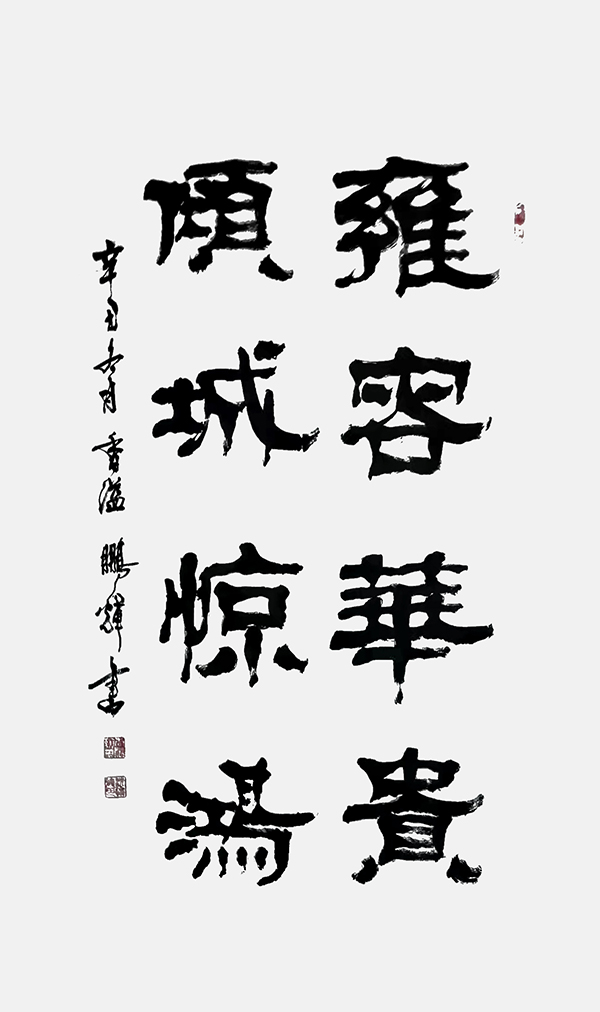 雍容華貴
傾城惊鴻
辛丑冬月香溢鵬輝書